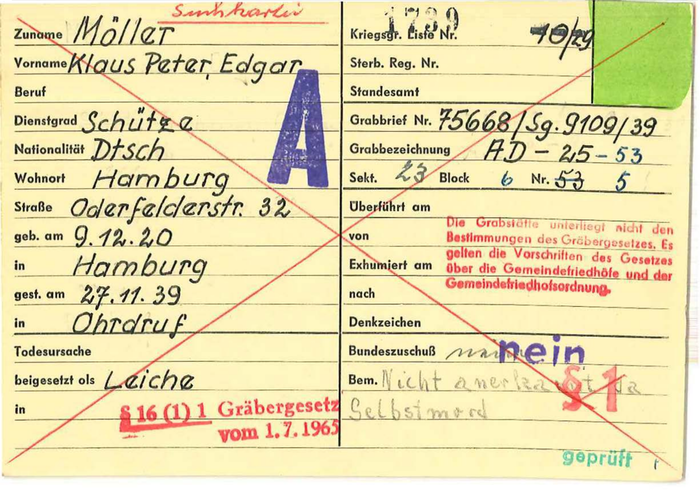 Suchkartei
Zuname Möller
Vorname Klaus Peter, Edgar
Beruf
Dienstgrad Schütze
Nationalität Dtsch
Wohnort Hamburg
Straße Oderfelderstr. 32
geb. am 9.12.20
in Hamburg
gest. am 27.11.39
in Ohrdruf
Todesursache
beigesetzt als Leiche
in
§ 16 (1) 1 Gräbergesetz
vom 1.7.1965
A
1739
Kriegsgr. Liste Nr. 10/29
Sterb. Reg. Nr.
Standesamt
Grabbrief Nr. 75668/Sg. 9109/39
Grabbezeichnung AD - 25 - 53
Sekt. 23 Block 6 Nr. 53 5
Überführt am
von
Exhumiert am
nach
Die Grabstätte unterliegt nicht den
Bestimmungen des Gräbergesetzes. Es
gelten die Vorschriften des Gesetzes
über die Gemeindefriedhöfe und der
Gemeindefriedhofsordnung.
Denkzeichen
Bundeszuschuß nein
Bem. Nicht anerkannt da
Selbstmord
§ 1
geprüft